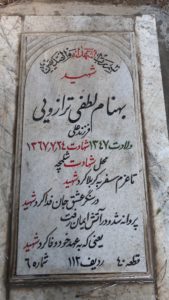 شهید
بهنام لطفی ترازویی
فرزند علی
ولادت ۱۳۴۷ شهادت ۱۳۶۷،۷،۲۴
محل شهادت شلمچه
تا عزم سفر به کربلا کرد شهید
در سنگر عشق جان فدا کرد شهید
پروانه شد و در آتش ایمان رفت
یعنی که به عهد خود وفا کرد شهید
قطعه ۴۰ ردیف ۱۱۲ شماره ۶